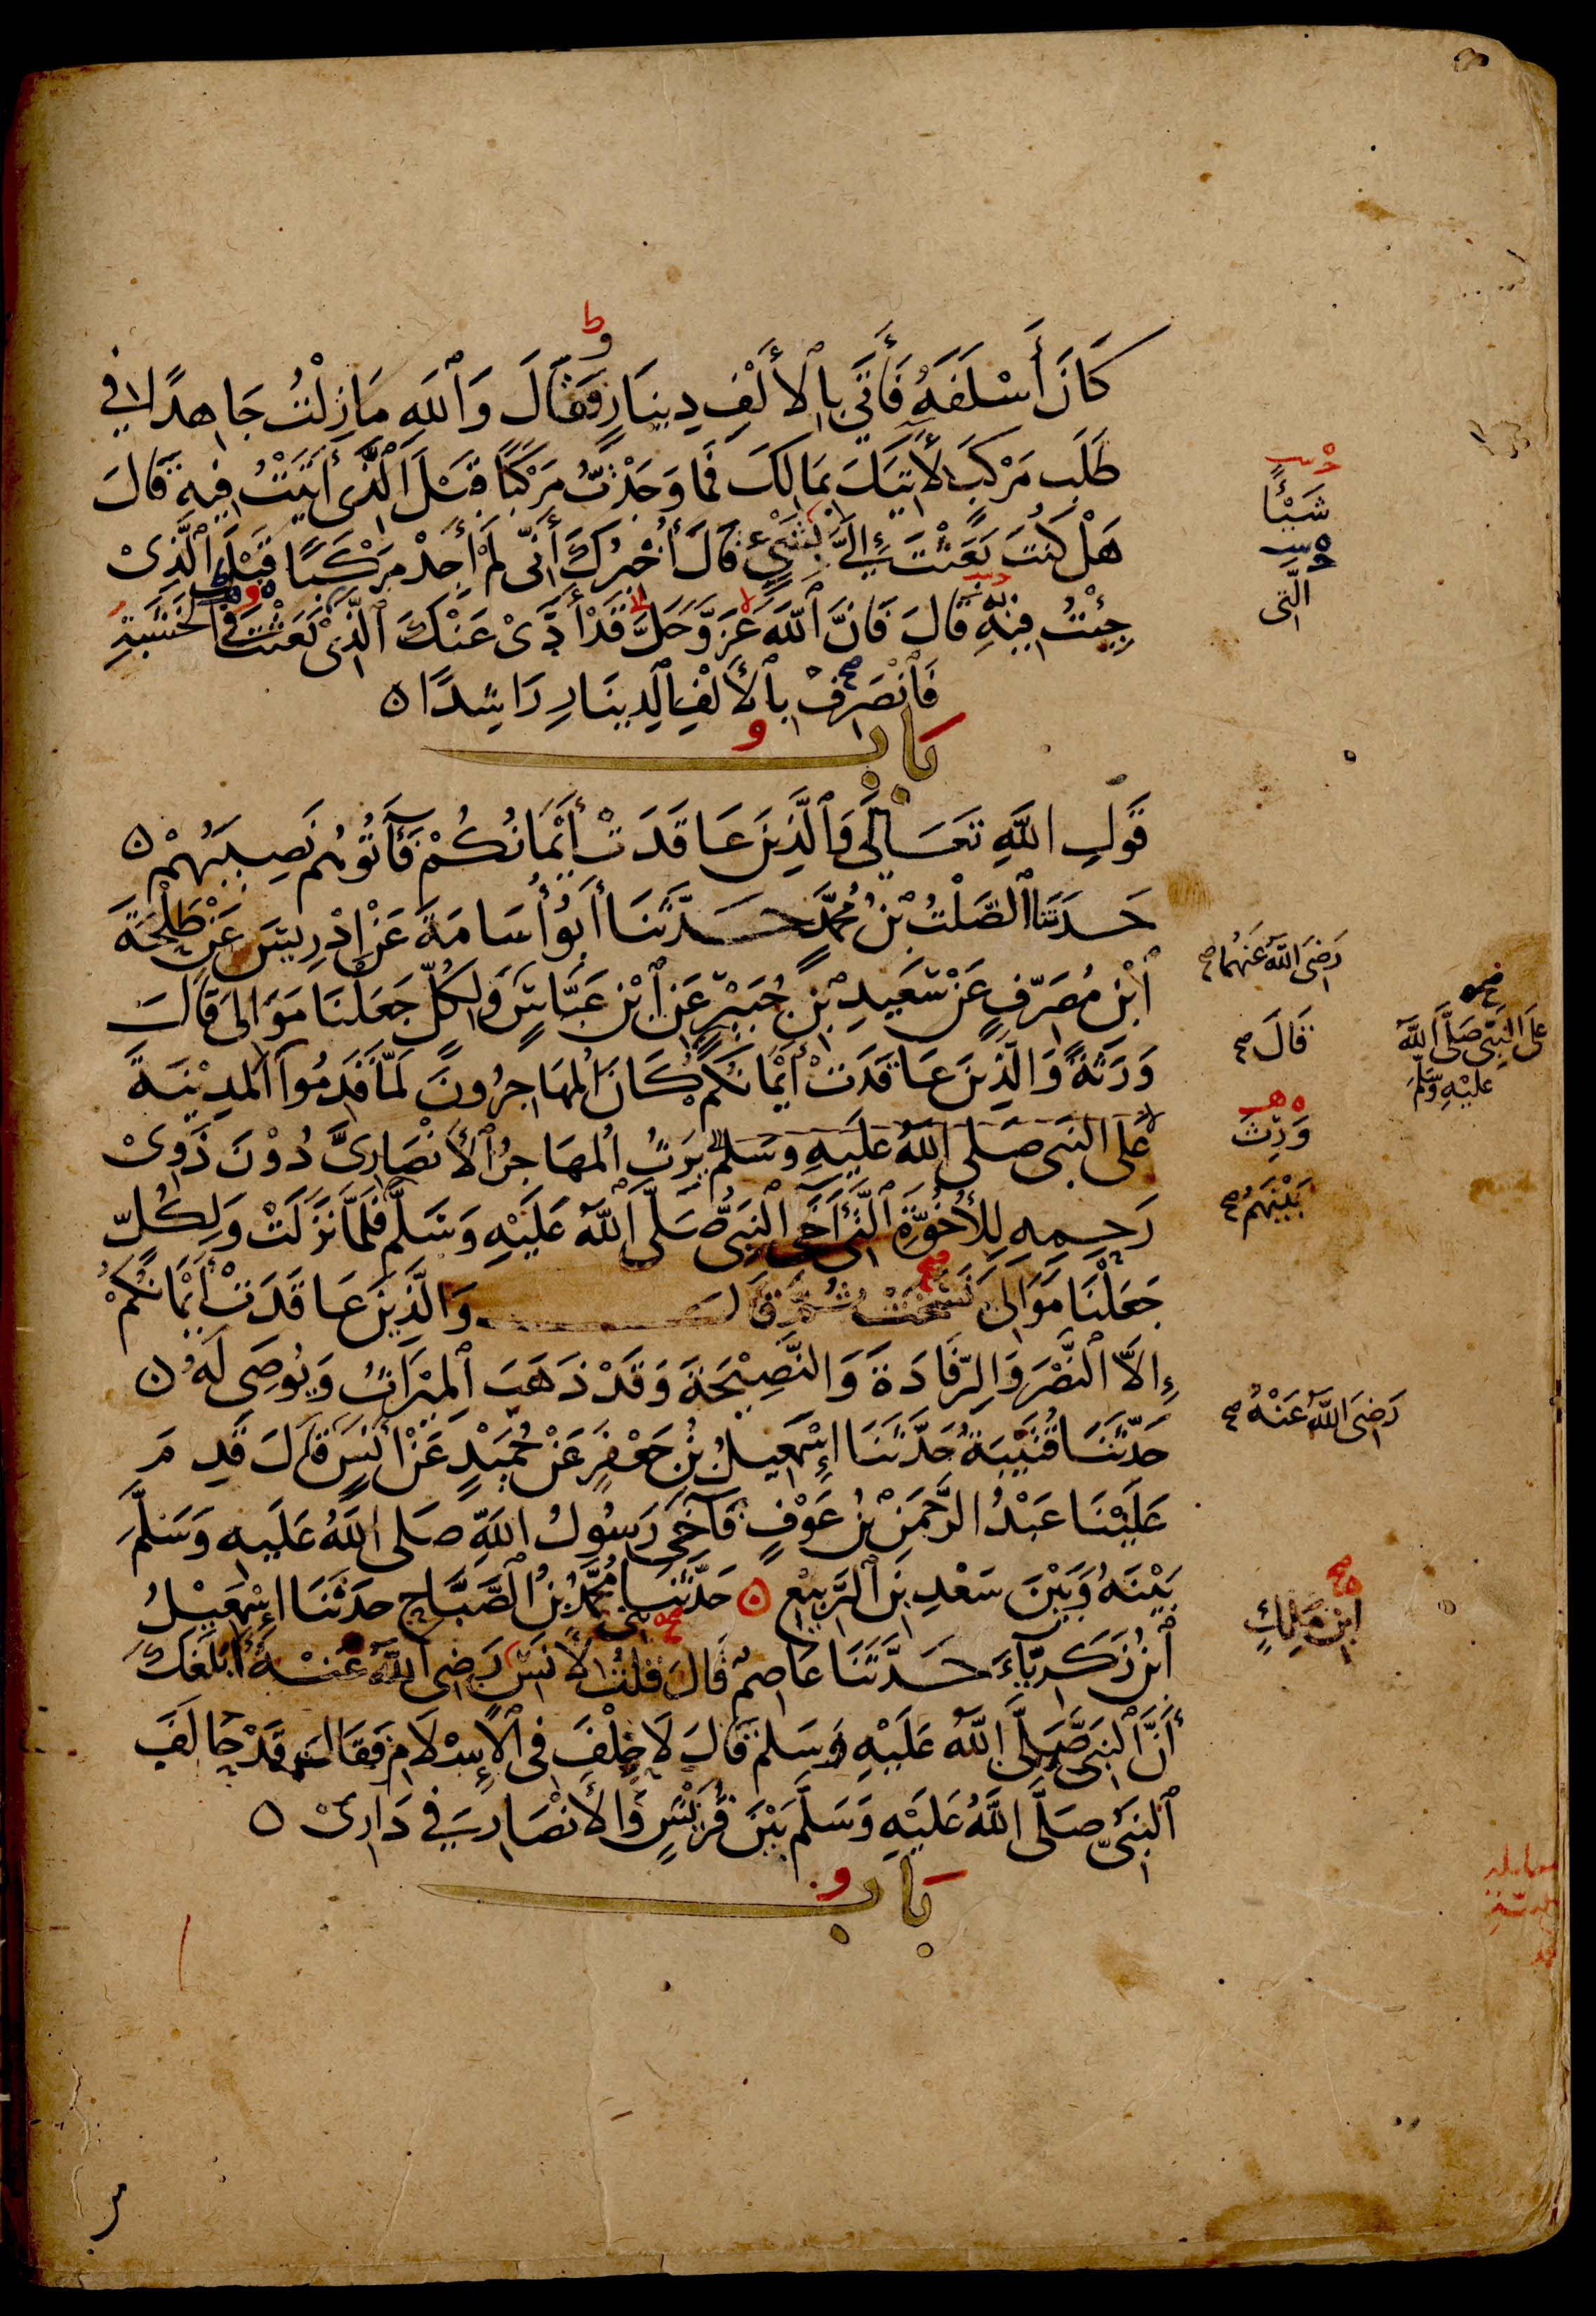 كَانَ أَسْلَفَهُ فَأَتَى بِالْأَلْفِ دِينَارٍ وَقَالَ وَاللَّهِ مَا زِلْتُ جَاهِدًا فِي
طَلَبِ مَرْكَبٍ لِأَتِيَكَ بِمَالِكَ فَمَا وَجَدْتُ مَرْكَبًا قَبْلَ الَّذِي أَتَيْتُ فِيهِ قَالَ
هَلْ كُنْتَ بَعَثْتَ إِلَيَّ بِشَيْءٍ قَالَ أُخْبِرُكَ أَنِّي لَمْ أَجِدْ مَرْكَبًا قَبْلَ الَّذِي
جِئْتُ فِيهِ قَالَ فَإِنَّ اللَّهَ عَزَّ وَجَلَّ قَدْ أَدَّى عَنْكَ الَّذِي بَعَثْتَ فِي الْخَشَبَةِ
فَانْصَرِفْ بِالْأَلْفِ الدِّينَارِ رَاشِدًا ٥
بَاب
قَوْلِ اللَّهِ تَعَالَى وَالَّذِينَ عَاقَدَتْ أَيْمَانُكُمْ فَآتُوهُمْ نَصِيبَهُمْ ٥
حَدَّثَنَا الصَّلْتُ بْنُ مُحَمَّدٍ حَدَّثَنَا أَبُو أُسَامَةَ عَنْ إِدْرِيسَ عَنْ طَلْحَةَ
ابْنِ مُصَرِّفٍ عَنْ سَعِيدِ بْنِ جُبَيْرٍ عَنِ ابْنِ عَبَّاسٍ وَلِكُلٍّ جَعَلْنَا مَوَالِيَ قَالَ
وَرَثَةً وَالَّذِينَ عَاقَدَتْ أَيْمَانُكُمْ كَانَ الْمُهَاجِرُونَ لَمَّا قَدِمُوا الْمَدِينَةَ
عَلَى النَّبِيِّ صَلَّى اللَّهُ عَلَيْهِ وَسَلَّمَ يَرِثُ الْمُهَاجِرُ الْأَنْصَارِيَّ دُونَ ذَوِي
رَحِمِهِ لِلْأُخُوَّةِ الَّتِي آخَى النَّبِيُّ صَلَّى اللَّهُ عَلَيْهِ وَسَلَّمَ فَلَمَّا نَزَلَتْ وَلِكُلٍّ
جَعَلْنَا مَوَالِيَ نَسَخَتْ ثُمَّ قَالَ وَالَّذِينَ عَاقَدَتْ أَيْمَانُكُمْ
إِلَّا النَّصْرَ وَالرِّفَادَةَ وَالنَّصِيحَةَ وَقَدْ ذَهَبَ الْمِيرَاثُ وَيُوصِي لَهُ ٥
حَدَّثَنَا قُتَيْبَةُ حَدَّثَنَا إِسْمَعِيلُ بْنُ جَعْفَرٍ عَنْ حُمَيْدٍ عَنْ أَنَسٍ قَالَ قَدِمَ
عَلَيْنَا عَبْدُ الرَّحْمَنِ بْنُ عَوْفٍ فَآخَى رَسُولُ اللَّهِ صَلَّى اللَّهُ عَلَيْهِ وَسَلَّمَ
بَيْنَهُ وَبَيْنَ سَعْدِ بْنِ الرَّبِيعِ ٥ حَدَّثَنَا مُحَمَّدُ بْنُ الصَّبَّاحِ حَدَّثَنَا إِسْمَعِيلُ
ابْنُ زَكَرِيَّاءَ حَدَّثَنَا عَاصِمٌ قَالَ قُلْتُ لِأَنَسٍ رَضِيَ اللَّهُ عَنْهُ أَبَلَغَكَ
أَنَّ النَّبِيَّ صَلَّى اللَّهُ عَلَيْهِ وَسَلَّمَ قَالَ لَا حِلْفَ فِي الْإِسْلَامِ فَقَالَ قَدْ حَالَفَ
النَّبِيُّ صَلَّى اللَّهُ عَلَيْهِ وَسَلَّمَ بَيْنَ قُرَيْشٍ وَالْأَنْصَارِ فِي دَارِي ٥
بَاب
شَيْئًا
الَّتِي
رَضِيَ اللَّهُ عَنْهُمَا صح
قَالَ صح
عَلَى النَّبِيِّ صَلَّى اللَّهُ
عَلَيْهِ وَسَلَّمَ
وَرِثَ
بَيْنَهُمْ صح
رَضِيَ اللَّهُ عَنْهُ صح
ابْنِ مَالِكٍ